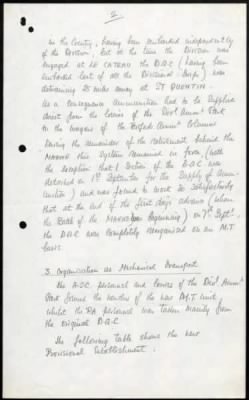 2
in the Country, having been embarked independently
of the Division, but at the time the Division was
engaged at LE CATEAU the D.A.C (having been
embarked last of all the Divisional Troops) was
detraining 25 miles away at ST QUENTIN.
As a consequence ammunition had to be supplied
direct from the lorries of the Divl Ammn Park
to the wagons of the Brigade Ammn Columns
During the remainder of the retirement behind the
MARNE this system remained in force (with
the exception that 1 Section of the D.A.C was
detached on 1st September for the supply of Amm-
unition) and was found to work so satisfactorily
that at the end of the first day's advance (when
the Battle of the MARNE was beginning) on 7th Septr
the D.A.C was completely reorganised on an M.T
basis.
3. Organisation as Mechanical Transport
The A.S.C. personnel and lorries of the Divl Ammn
Park formed the nucleus of the new M.T unit,
whilst the RA personnel was taken mainly from
the original D.A.C
The following table shows the new
Provisional Establishment.